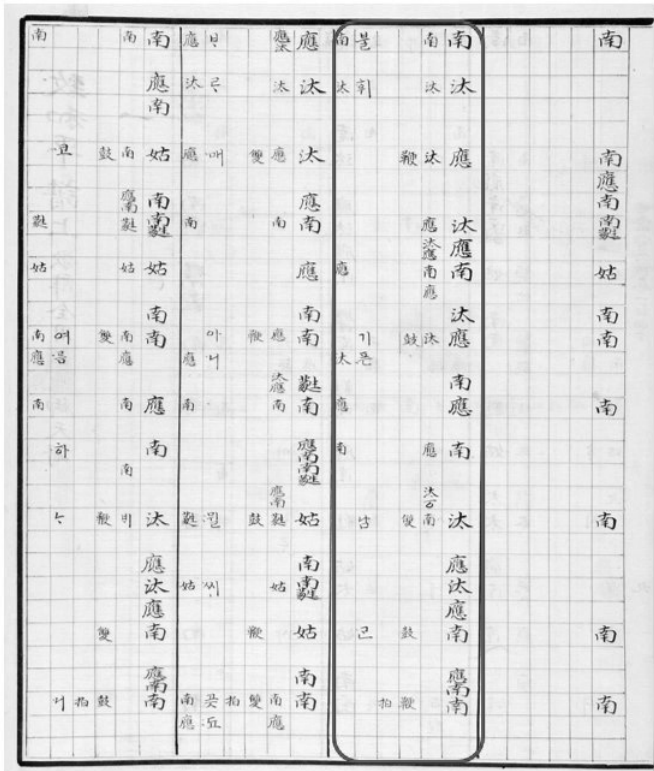 南南應南南蕤姑南南南南南南
南汰應汰應南汰應南應南汰應汰應南應南南
南汰汰應汰應南應汰應汰應南
鞭鼓雙鼓鞭
拍
불휘기픈남
南太應太應南
應汰汰應南應南南蕤南應南南蕤姑南南蕤姑南南
應汰汰應南應汰應南應南蕤姑南應
雙鞭鼓鞭雙
拍
ᄇᆞᄅᆞ매아니뮐ᄊᆡ곳됴
應汰應南應南蕤姑南應
南應南姑南南蕤姑南南應南汰應汰應南應南南
南南應南蕤姑南應南南
鼓雙鞭雙鼓
拍
여름하ᄂᆞ니
南蕤姑南應南